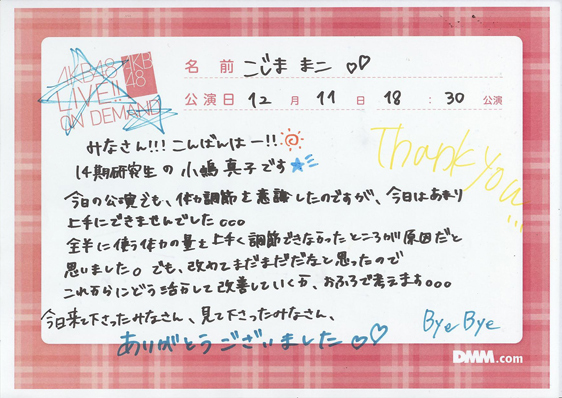 AKB48
LIVE!!
ON DEMAND
AKB
48
名 前 こじま まこ ♡♡
公演日 12 月 11 日 18 : 30 公演
みなさん!!! こんばんはー!!
14期研究生の 小嶋真子です
Thank you!!!
今日の公演でも、体力調節を意識したのですが、今日はあまり
上手にできませんでした。。。
全半に使う体力の量を上手く調節できなかったところが原因だと
思いました。でも、改めてまだまだだなと思ったので
これからにどう活かして改善していくか、おふろで考えます。。。
今日来て下さったみなさん、見て下さったみなさん、
Bye Bye
ありがとうございました♡♡
DMM.com